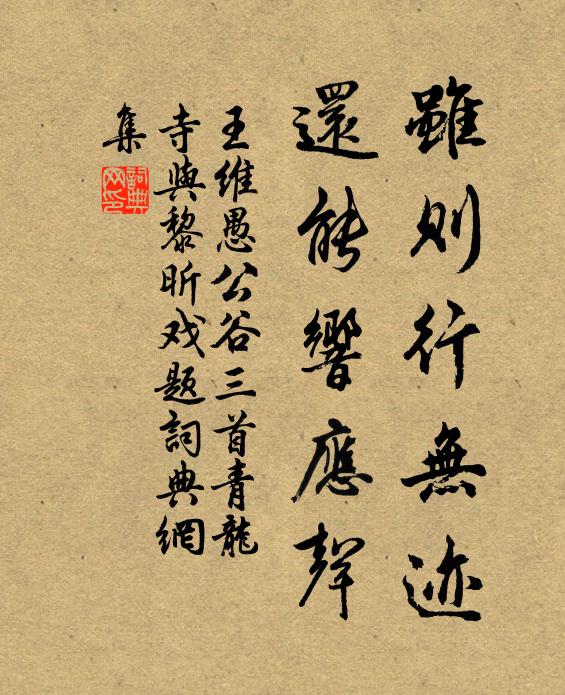 雖則行無迹
還能響應聲
王維愚公谷三首青龍
寺與黎昕戏题詞典網
集
詞典网印